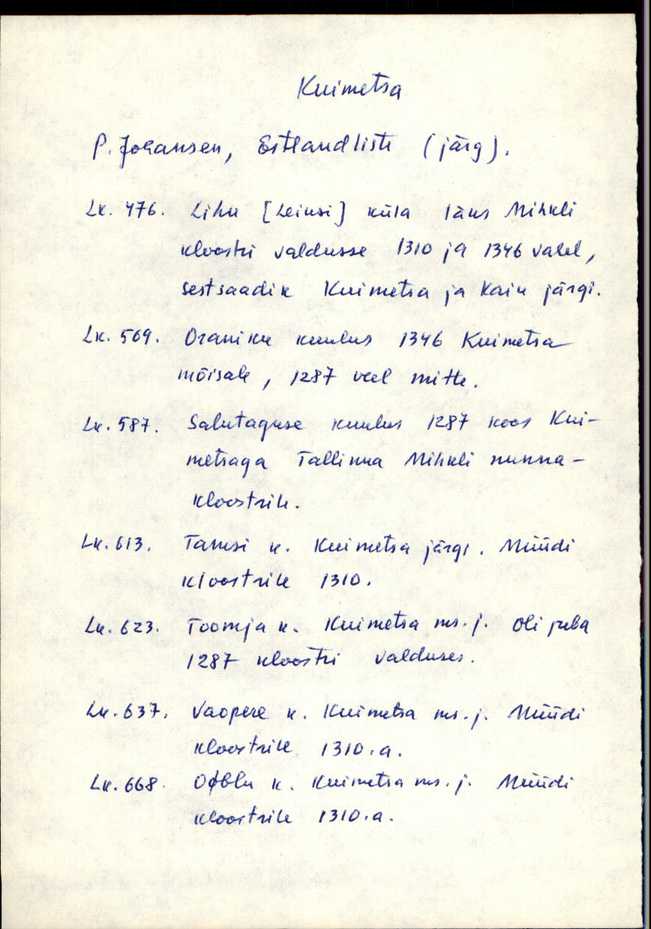 Kuimetsa
P. Johansen, Estlandliste (järg).
Lk. 476. Lihu [Leinsi] küla läks Mihkli
kloostri valdusse 1310 ja 1346 vahel,
sestsaadik Kuimetsa ja Kaiu järgi.
Lk. 569. Oraniku kuulus 1346 Kuimetsa
mõisale, 1287 veel mitte.
Lk. 587. Salutaguse kuulus 1287 koos Kui-
metsaga Tallinna Mihkli nunna-
kloostrile.
Lk. 613. Tamsi k. Kuimetsa järgi. Müüdi
kloostrile 1310.
Lk. 623. Toomja k. Kuimetsa ms. j. Oli juba
1287 kloostri valduses.
Lk. 637. Vaopere k. Kuimetsa ms. j. Müüdi
kloostrile 1310. a.
Lk. 668. k. Kuimetsa ms. j. Müüdi
kloostrile 1310. a.